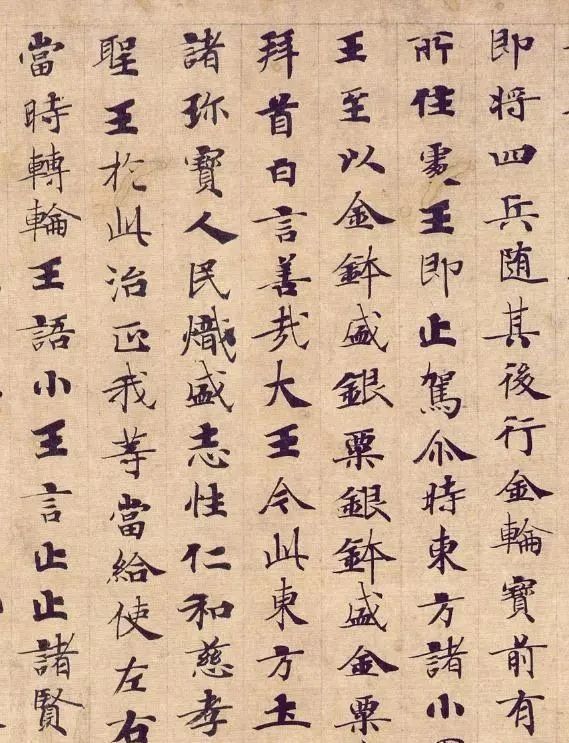 即将四兵随其後行金輪寶前有
所住處王即止駕尒時東方諸小
王至以金鉢盛銀粟銀鉢盛金粟
拜首白言善㢤大王今此東方土
諸珎寶人民熾盛志性仁和慈孝
聖王於此治正我等當給使左右
當時轉輪王語小王言止止諸賢